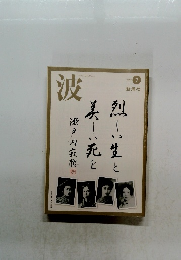 波
烈しい生と
美しい死を
瀬戸内寂聴